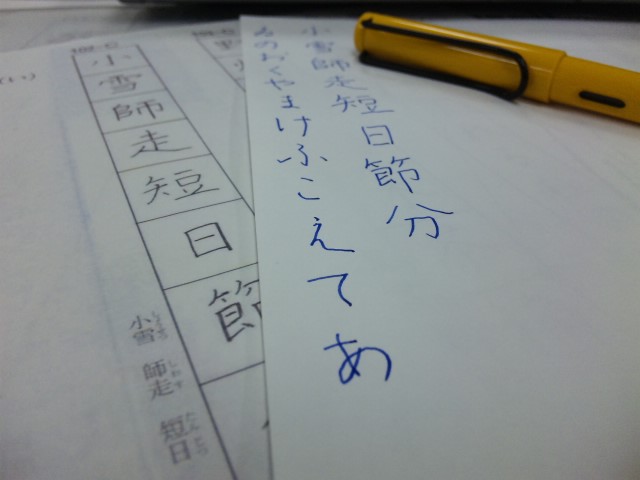 小雪師走短日節分
ゐのおくやまけふこえてあ
小雪師走短日節
小雪 師走 短日